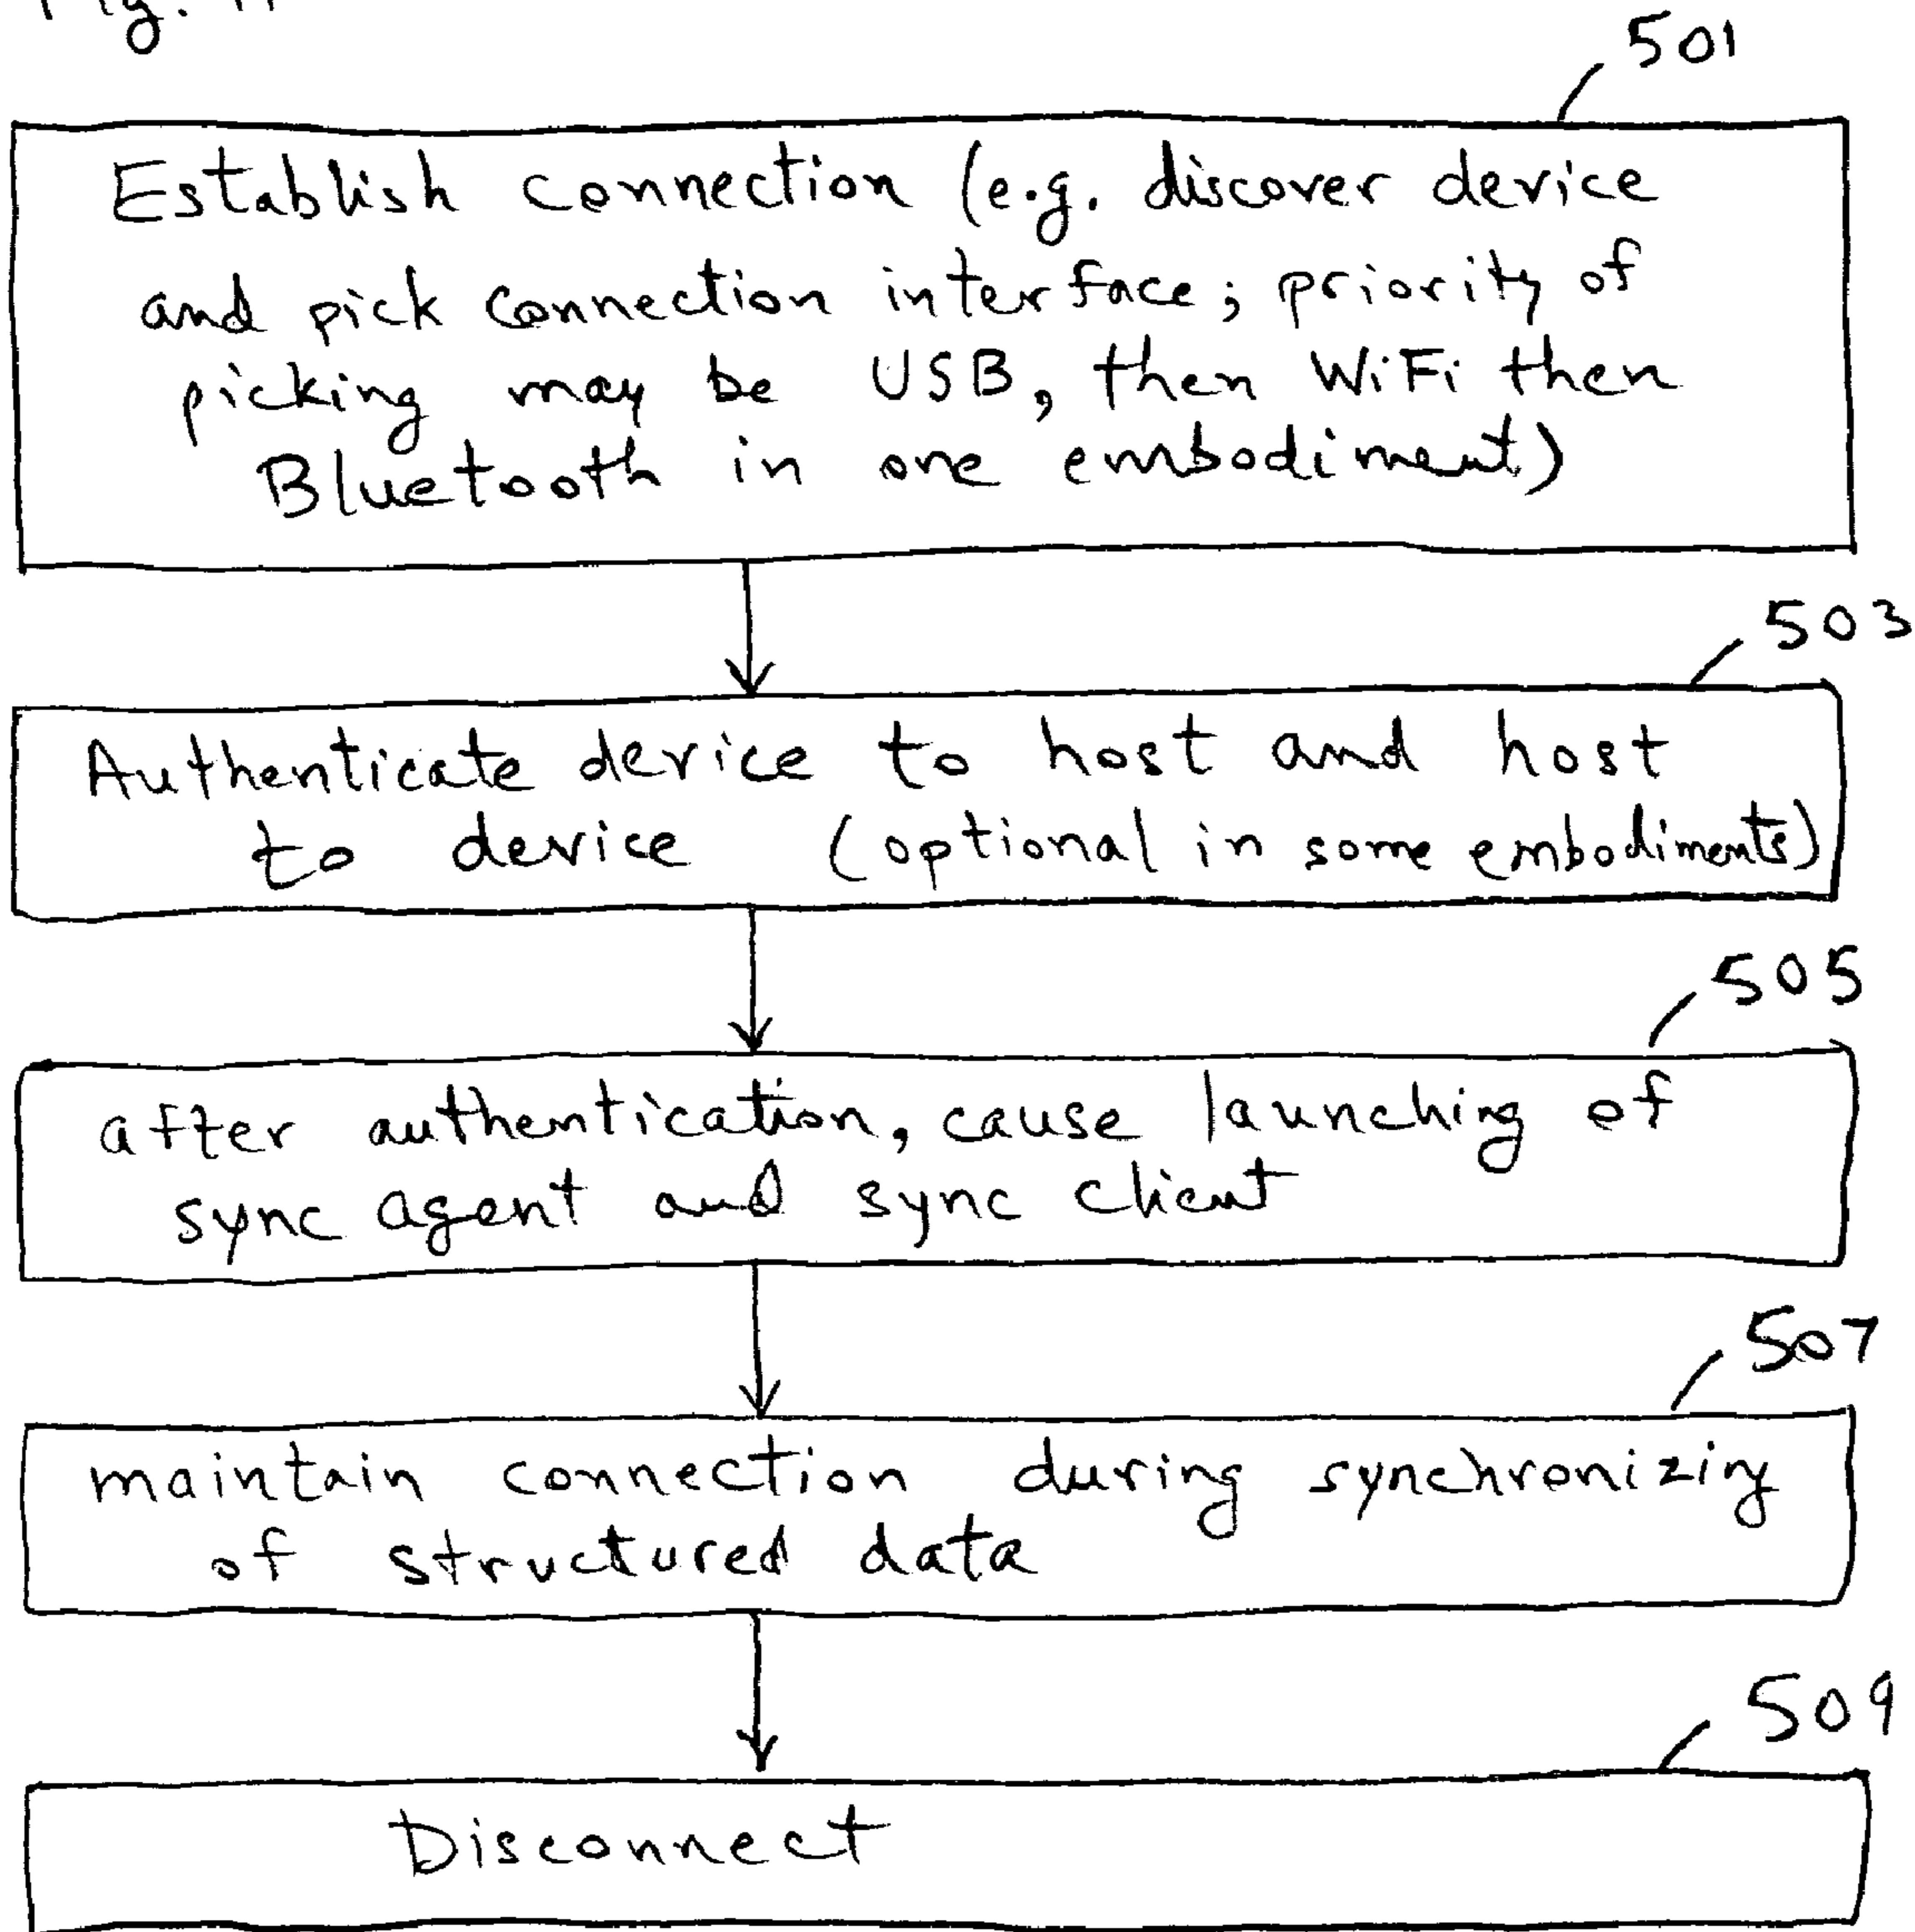 Fig.
501
Establish connection (e.g. discover device
and pick connection interface; priority of
picking may be USB, then WiFi then
Bluetooth in one embodiment)
503
Authenticate device to host and host
to device (optional in some embodiments)
505
after authentication, cause launching of
sync agent and sync client
507
maintain connection during synchronizing
of structured data
509
Disconnect